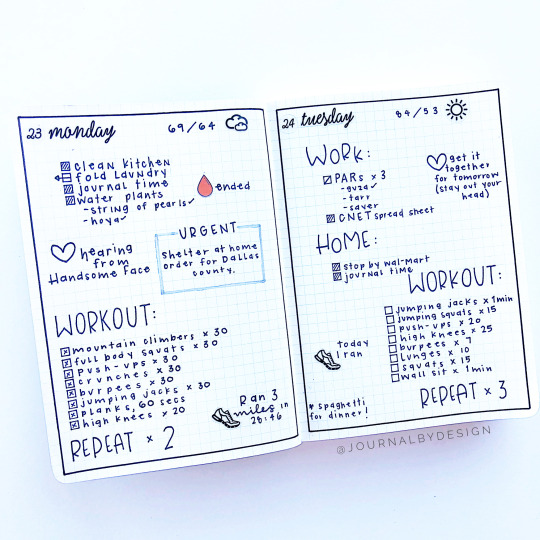 23 monday
69/64
clean kitchen
fold laundry
journal time
water plants
-string of pearls✓
-hoya✓
ended
hearing
from
Handsome Face
URGENT
Shelter at home
order for Dallas
county.
WORKOUT:
mountain climbers × 30
full body squats × 30
push-ups × 30
crunches × 30
burpees × 30
jumping jacks × 30
planks, 60 secs
high knees × 20
REPEAT × 2
Ran 3
miles in
28:46
24 tuesday
84/53
WORK:
PARs × 3
-guza✓
-tarr
-saver
CNET spread sheet
get it
together
for tomorrow
(stay out your
head)
HOME:
stop by wal-mart
journal time
WORKOUT:
jumping jacks × 1min
jumping squats × 15
push-ups × 20
high knees × 25
burpees × 7
lunges × 10
squats × 15
wall sit × 1min
REPEAT × 3
Today
I ran
* spaghetti
for dinner!
@JOURNALBYDESIGN